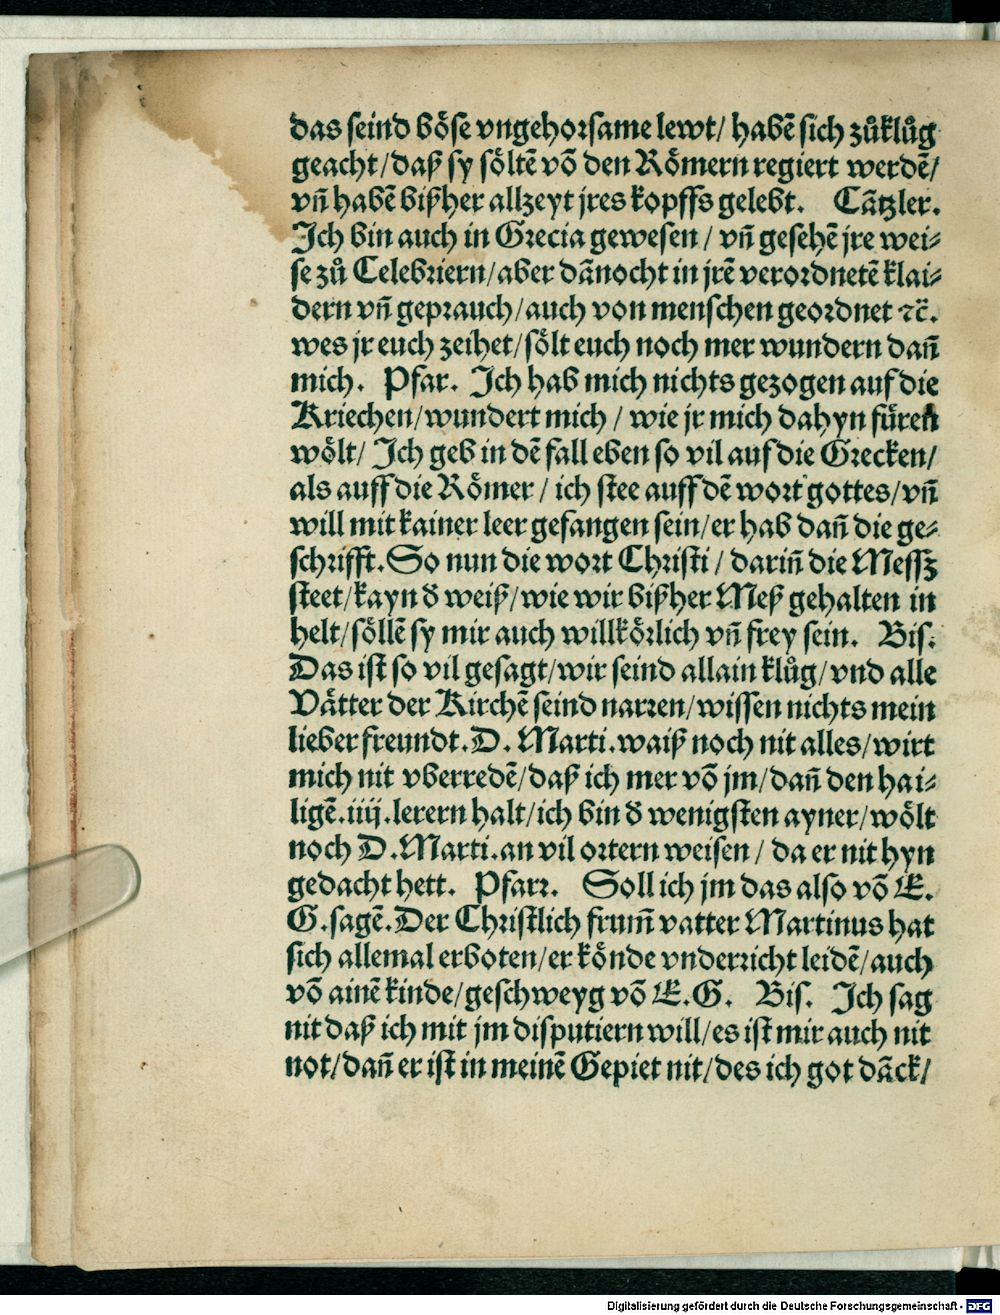 das seind böse vngehorsame lewt/ habẽ sich zůklůg
geacht/daß sy söltẽ võ den Römern regiert werdẽ/
vñ habẽ bißher allzeyt jres kopffs gelebt. Cãtzler.
Ich bin auch in Grecia gewesen / vñ gesehẽ jre wei⸗
se zů Celebriern/aber dãnocht in jrẽ verordnetẽ klai⸗
dern vñ geprauch/auch von menschen geordnet ꝛc̃.
wes jr euch zeihet/sölt euch noch mer wundern dañ
mich. Pfar. Ich hab mich nichts gezogen auf die
Kriechen/wundert mich / wie jr mich dahyn füren
wölt/ Ich geb in dẽ fall eben so vil auf die Grecken/
als auff die Römer / ich stee auff dẽ wort gottes/vñ
will mit kainer leer gefangen sein/er hab dañ die ge⸗
schrifft. So nun die wort Christi / dariñ die Messz
steet/kayn ð weiß/wie wir bißher Meß gehalten in
helt/söllẽ sy mir auch willkörlich vñ frey sein. Bis.
Das ist so vil gesagt/wir seind allain klůg/vnd alle
Vätter der Kirchẽ seind narren/wissen nichts mein
lieber freundt. D. Marti.waiß noch nit alles/wirt
mich nit vberredẽ/daß ich mer võ jm/dañ den hai⸗
ligẽ.iiij.lerern halt/ich bin ð wenigsten ayner/wölt
noch D. Marti.an vil ortern weisen / da er nit hyn
gedacht hett. Pfarr. Soll ich jm das also võ E.
G.sagẽ. Der Christlich frum̃ vatter Martinus hat
sich allemal erboten/er könde vnderricht leidẽ/auch
võ ainẽ kinde/geschweyg võ E.G. Bis. Ich sag
nit daß ich mit jm disputiern will/es ist mir auch nit
not/dañ er ist in meinẽ Gepiet nit/des ich got dãck/
Digitalisierung gefördert durch die Deutsche Forschungsgemeinschaft - DFG